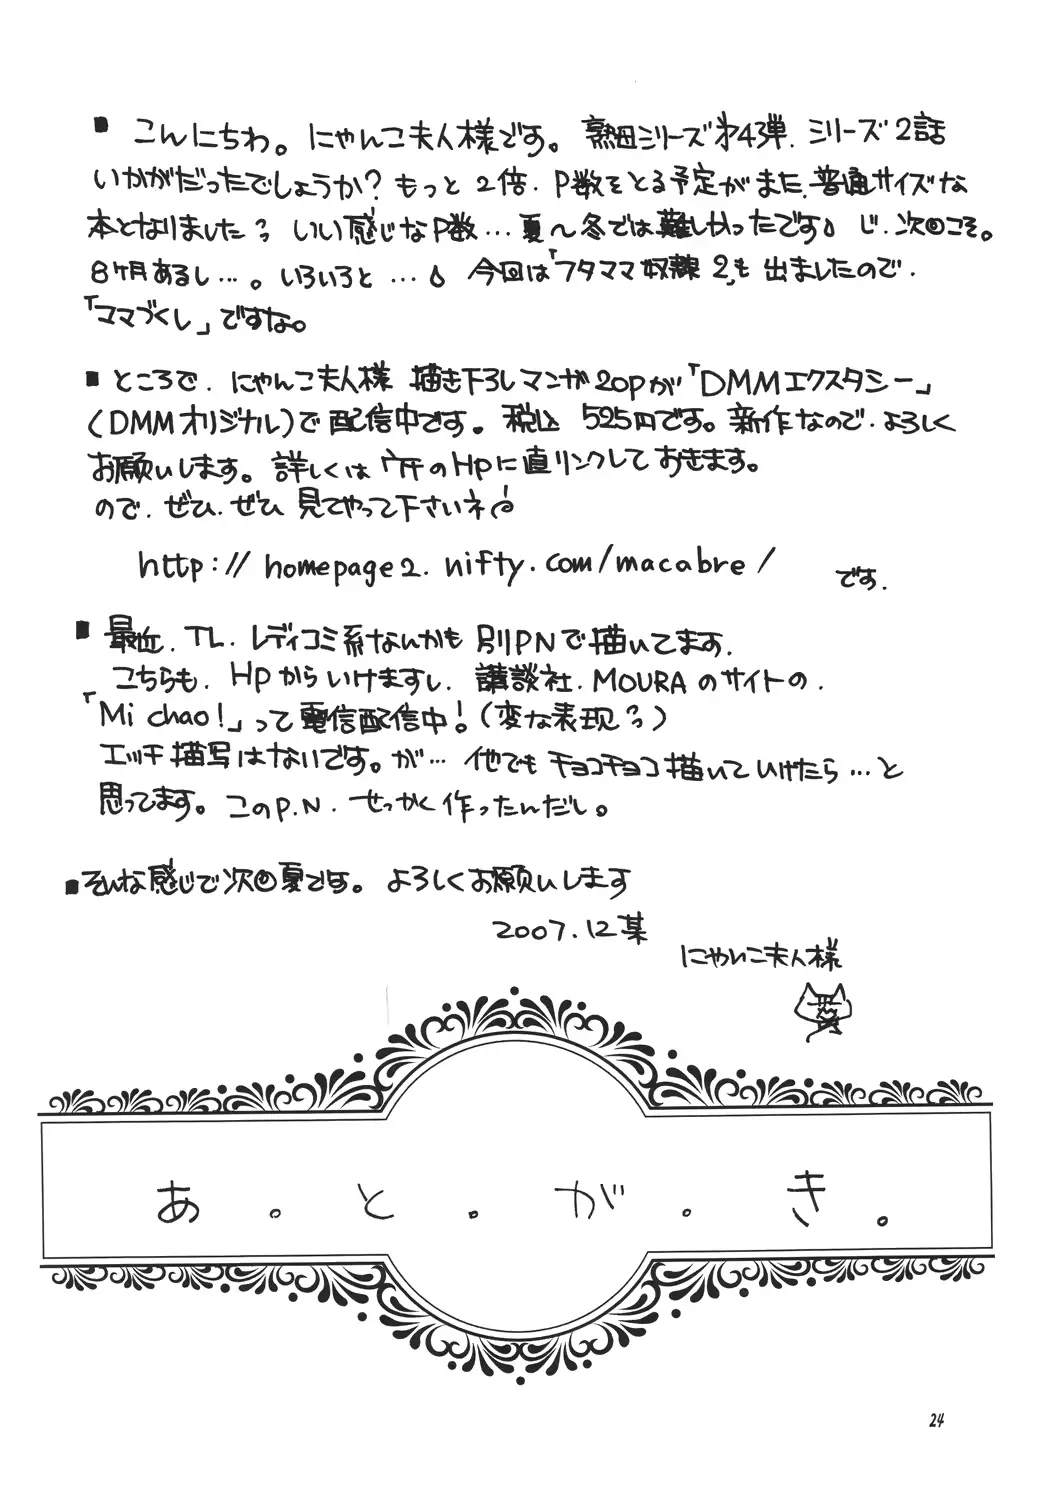 ■ こんにちわ。にゃんこ夫人様です。熟母シリーズ第4弾.シリーズ2話
いかがだったでしょうか?もっと2倍.P数をとる予定がまた.普通サイズな
本となりましたっ いい感じなP数…夏〜冬では難しかったです じ.次回こそ。
8ヶ月あるし…。いろいろと… 今回は「フタママ奴隷2」も出ましたので.
「ママづくし」ですな。
■ ところで.にゃんこ夫人様 描き下ろしマンガ20Pが「DMMエクスタシー」
(DMMオリジナル)で配信中です。税込 525円です。新作なので.よろしく
お願いします。詳しくはウチのHPに直リンクしておきます。
ので.ぜひ.ぜひ見てやって下さいネ
http://homepage2.nifty.com/macabre/ です.
■ 最近.TL.レディコミ系なんかも別PNで描いてます.
こちらも.HPからいけますし.講談社.MOURAのサイトの.
「Mi chao!」って電信配信中!(変な表現っ)
エッチ描写はないです。が…他でもチョコチョコ描いていけたら…と
思ってます。このP.N.せっかく作ったんだし。
■ そんな感じで次回夏です。よろしくお願いします
2007.12某
にゃんこ夫人様
あ。と。が。き。
24